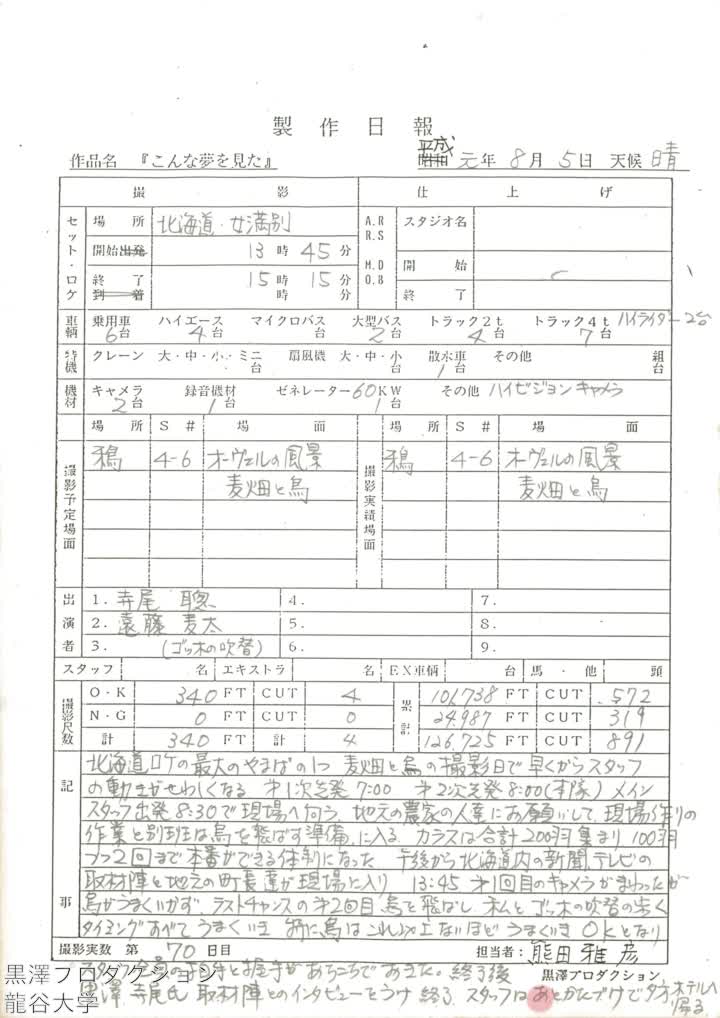 製作日報
作品名 『こんな夢を見た』 昭和 平成 元年 8月 5日 天候 晴
撮影 仕上げ
セット・ロケ 場所 北海道・女満別 A.R R.S スタジオ名
開始出発 13時 45分 M.D O.B 開始
終了 到着 15時 15分 終了
時 分
車輌 乗用車 6台 ハイエース 4台 マイクロバス 台 大型バス 2台 トラック2t 4台 トラック4t 7台 ハイライダー2台
特機 クレーン 大・中・小・ミニ 台 扇風機 大・中・小 台 散水車 1台 その他 組 台
機材 キャメラ 2台 録音機材 1台 ゼネレーター60KW 1台 その他 ハイビジョンキャメラ
場所 S# 場面 場所 S# 場面
撮影予定場面 鴉 4-6 オーヴェルの風景 撮影実績場面 鴉 4-6 オーヴェルの風景
麦畑と烏 麦畑と烏
出演者 1. 寺尾 聰 4. 7.
2. 遠藤 麦太 5. 8.
3. (ゴッホの吹替) 6. 9.
スタッフ 名 エキストラ 名 EX車輌 台 馬・他 頭
撮影尺数 O・K 340 FT CUT 4 累計 101.738 FT CUT 572
N・G 0 FT CUT 0 24.987 FT CUT 319
計 340 FT 計 4 126.725 FT CUT 891
記 北海道ロケの最大のやまばの1つ 麦畑と烏の撮影日で早くからスタッフ
の動きがせわしくなる 才1次先発 7:00 才2次先発 8:00(本隊) メイン
スタッフ出発 8:30で現場へ向う、地元の農家の人達にお願いして、現場作りの
作業と別班は烏を飛ばす準備に入る カラスは合計200羽集まり 100羽
づつ2回まで本番ができる体制になった 午後から北海道内の新聞、テレビの
取材陣と地元の町長達が現場に入り 13:45 才1回目のキャメラがまわったが
事 烏がうまくいかず、ラストチャンスの才2回目 烏を飛ばし 私とゴッホの吹替の歩く
タイミングすべてうまくいき 特に烏はこれ以上ないほどうまくいき OKとなり
撮影実数 第 70日目 担当者: 熊田 雅彦
スタッフ全員の拍手と握手があちこちでおきた。終了後 黒澤プロダクション
黒澤 寺尾氏 取材陣とのインタビューをうけ 終了、スタッフはあとかたづけで夕方ホテルへ帰る
黒澤プロダクション
龍谷大学